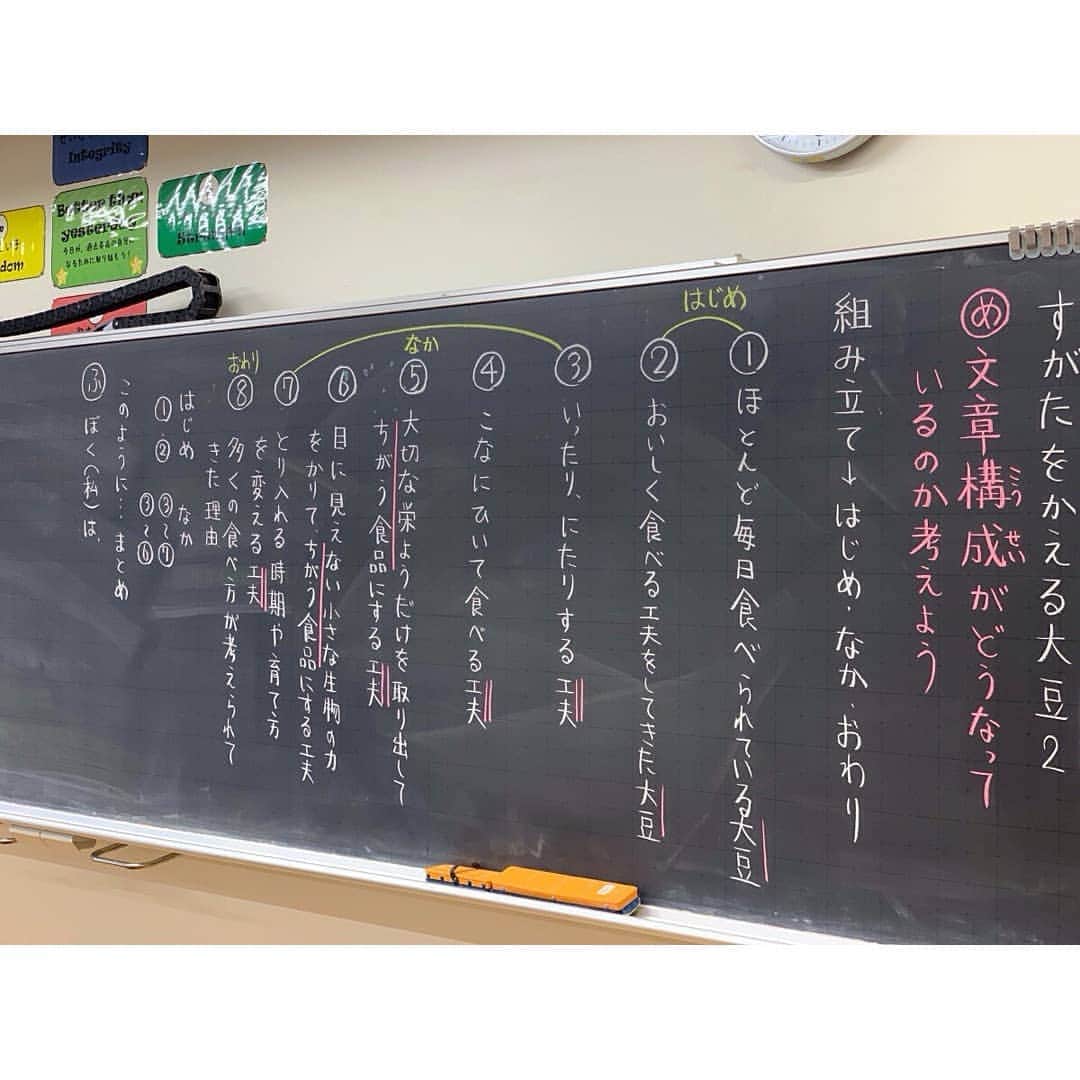 すがたをかえる大豆2
㋱文章構成がどうなって
こうせい
いるのか考えよう
組み立て→はじめ・なか・おわり
はじめ
①ほとんど毎日食べられている大豆
②おいしく食べる工夫をしてきた大豆
なか
③いったり、にたりする工夫
④こなにひいて食べる工夫
⑤大切な栄ようだけを取り出して
ちがう食品にする工夫
⑥目に見えない小さな生物の力
をかりて、ちがう食品にする工夫
⑦とり入れる時期や育て方
を変える工夫
おわり
⑧多くの食べ方が考えられて
きた理由
はじめ なか
①② ③〜⑦
③〜⑥
このように…まとめ
㋫ぼく(私)は、
Integrity
Better than
yesterday
今日が、過去最高の自分に
なるために取り組もう!
dom